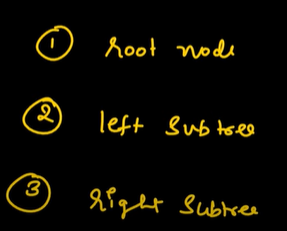 ① root node
② left subtree
③ Right Subtree